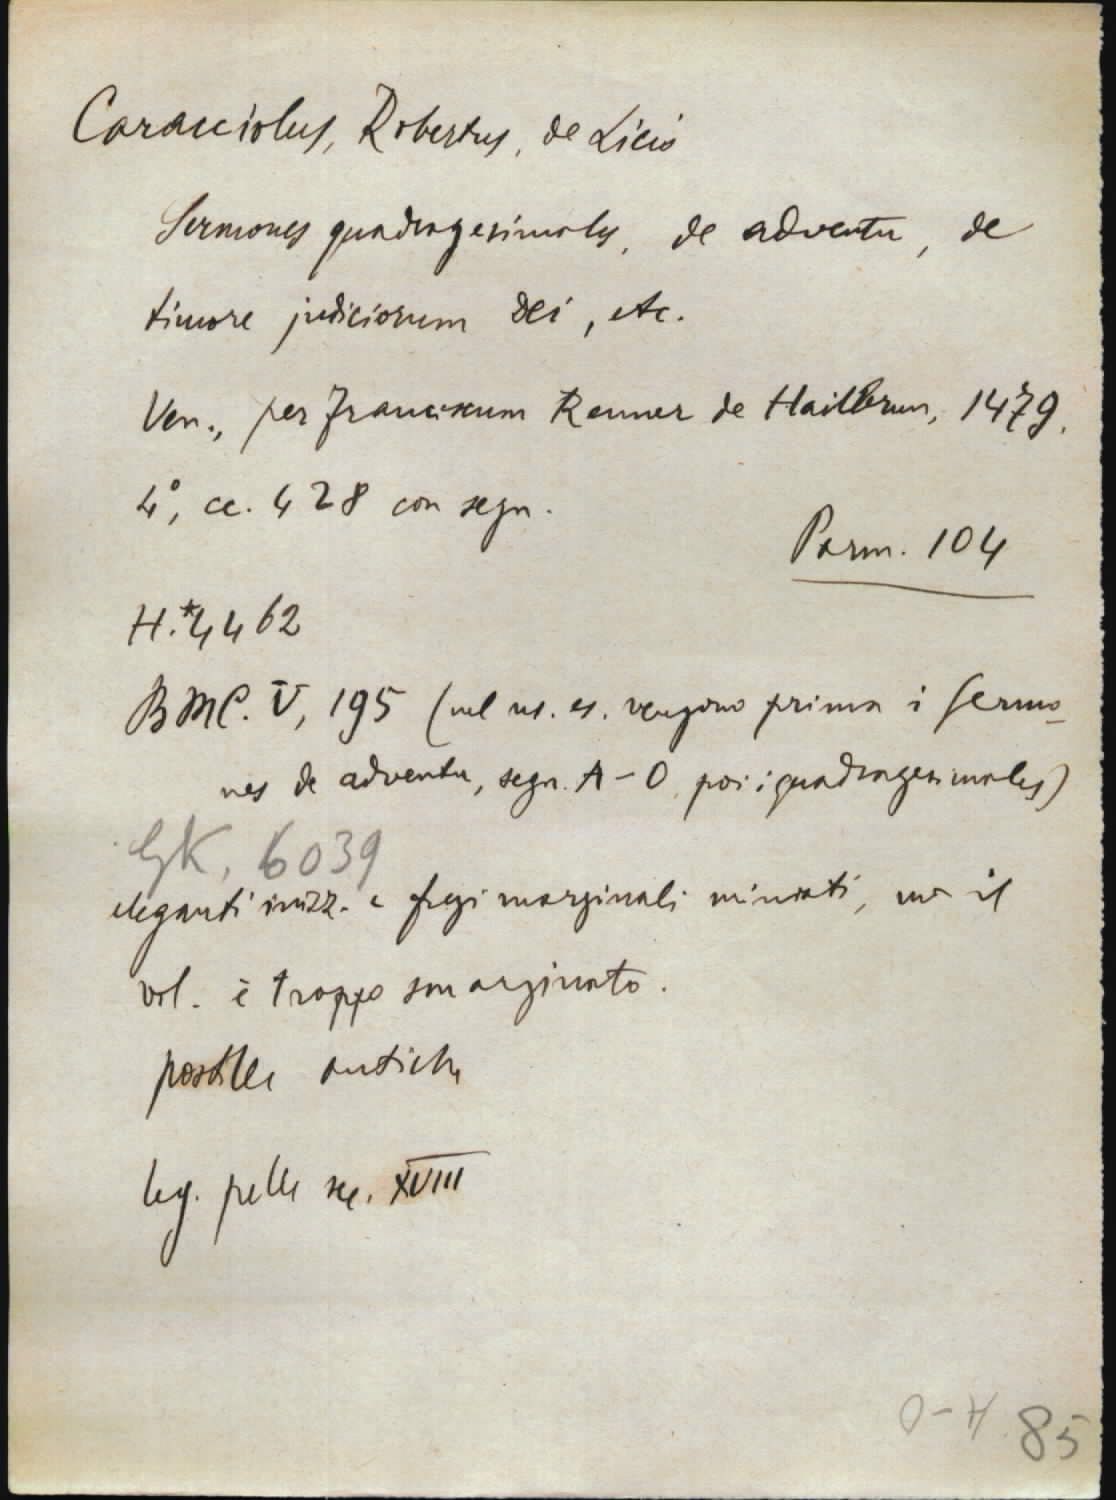 Caracciolus, Robertus, de Licio
Sermones quadragesimales, de adventu, de
timore judiciorum Dei, etc.
Ven., per Franciscum Renner de Hailbrun, 1479.
4°, cc. 428 con segn.
Parm. 104
H.*4462
BMC. V, 195 (nel ns. es. vengono prima i Sermo-
nes de adventu, segn. A-O, poi i quadragesimales)
GK. 6039
eleganti inizz. e fregi marginali miniati, ma il
vol. è troppo smarginato.
postille antiche
leg. pelle sec. XVIII
O-H 85